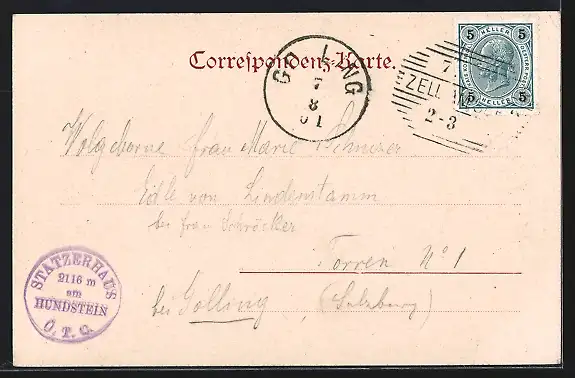 Correspondenz-Karte.
5 HELLER 5
5 HELLER 5
7
ZELL
2-3
G LING
7
8
01
Wolgeborne Frau Marie
Edle von Lindenstamm
bei Frau Schröcker
Torren No 1
bei Golling (Salzburg)
STATZERHAUS
2116 m
am
HUNDSTEIN
Ö. T. C.